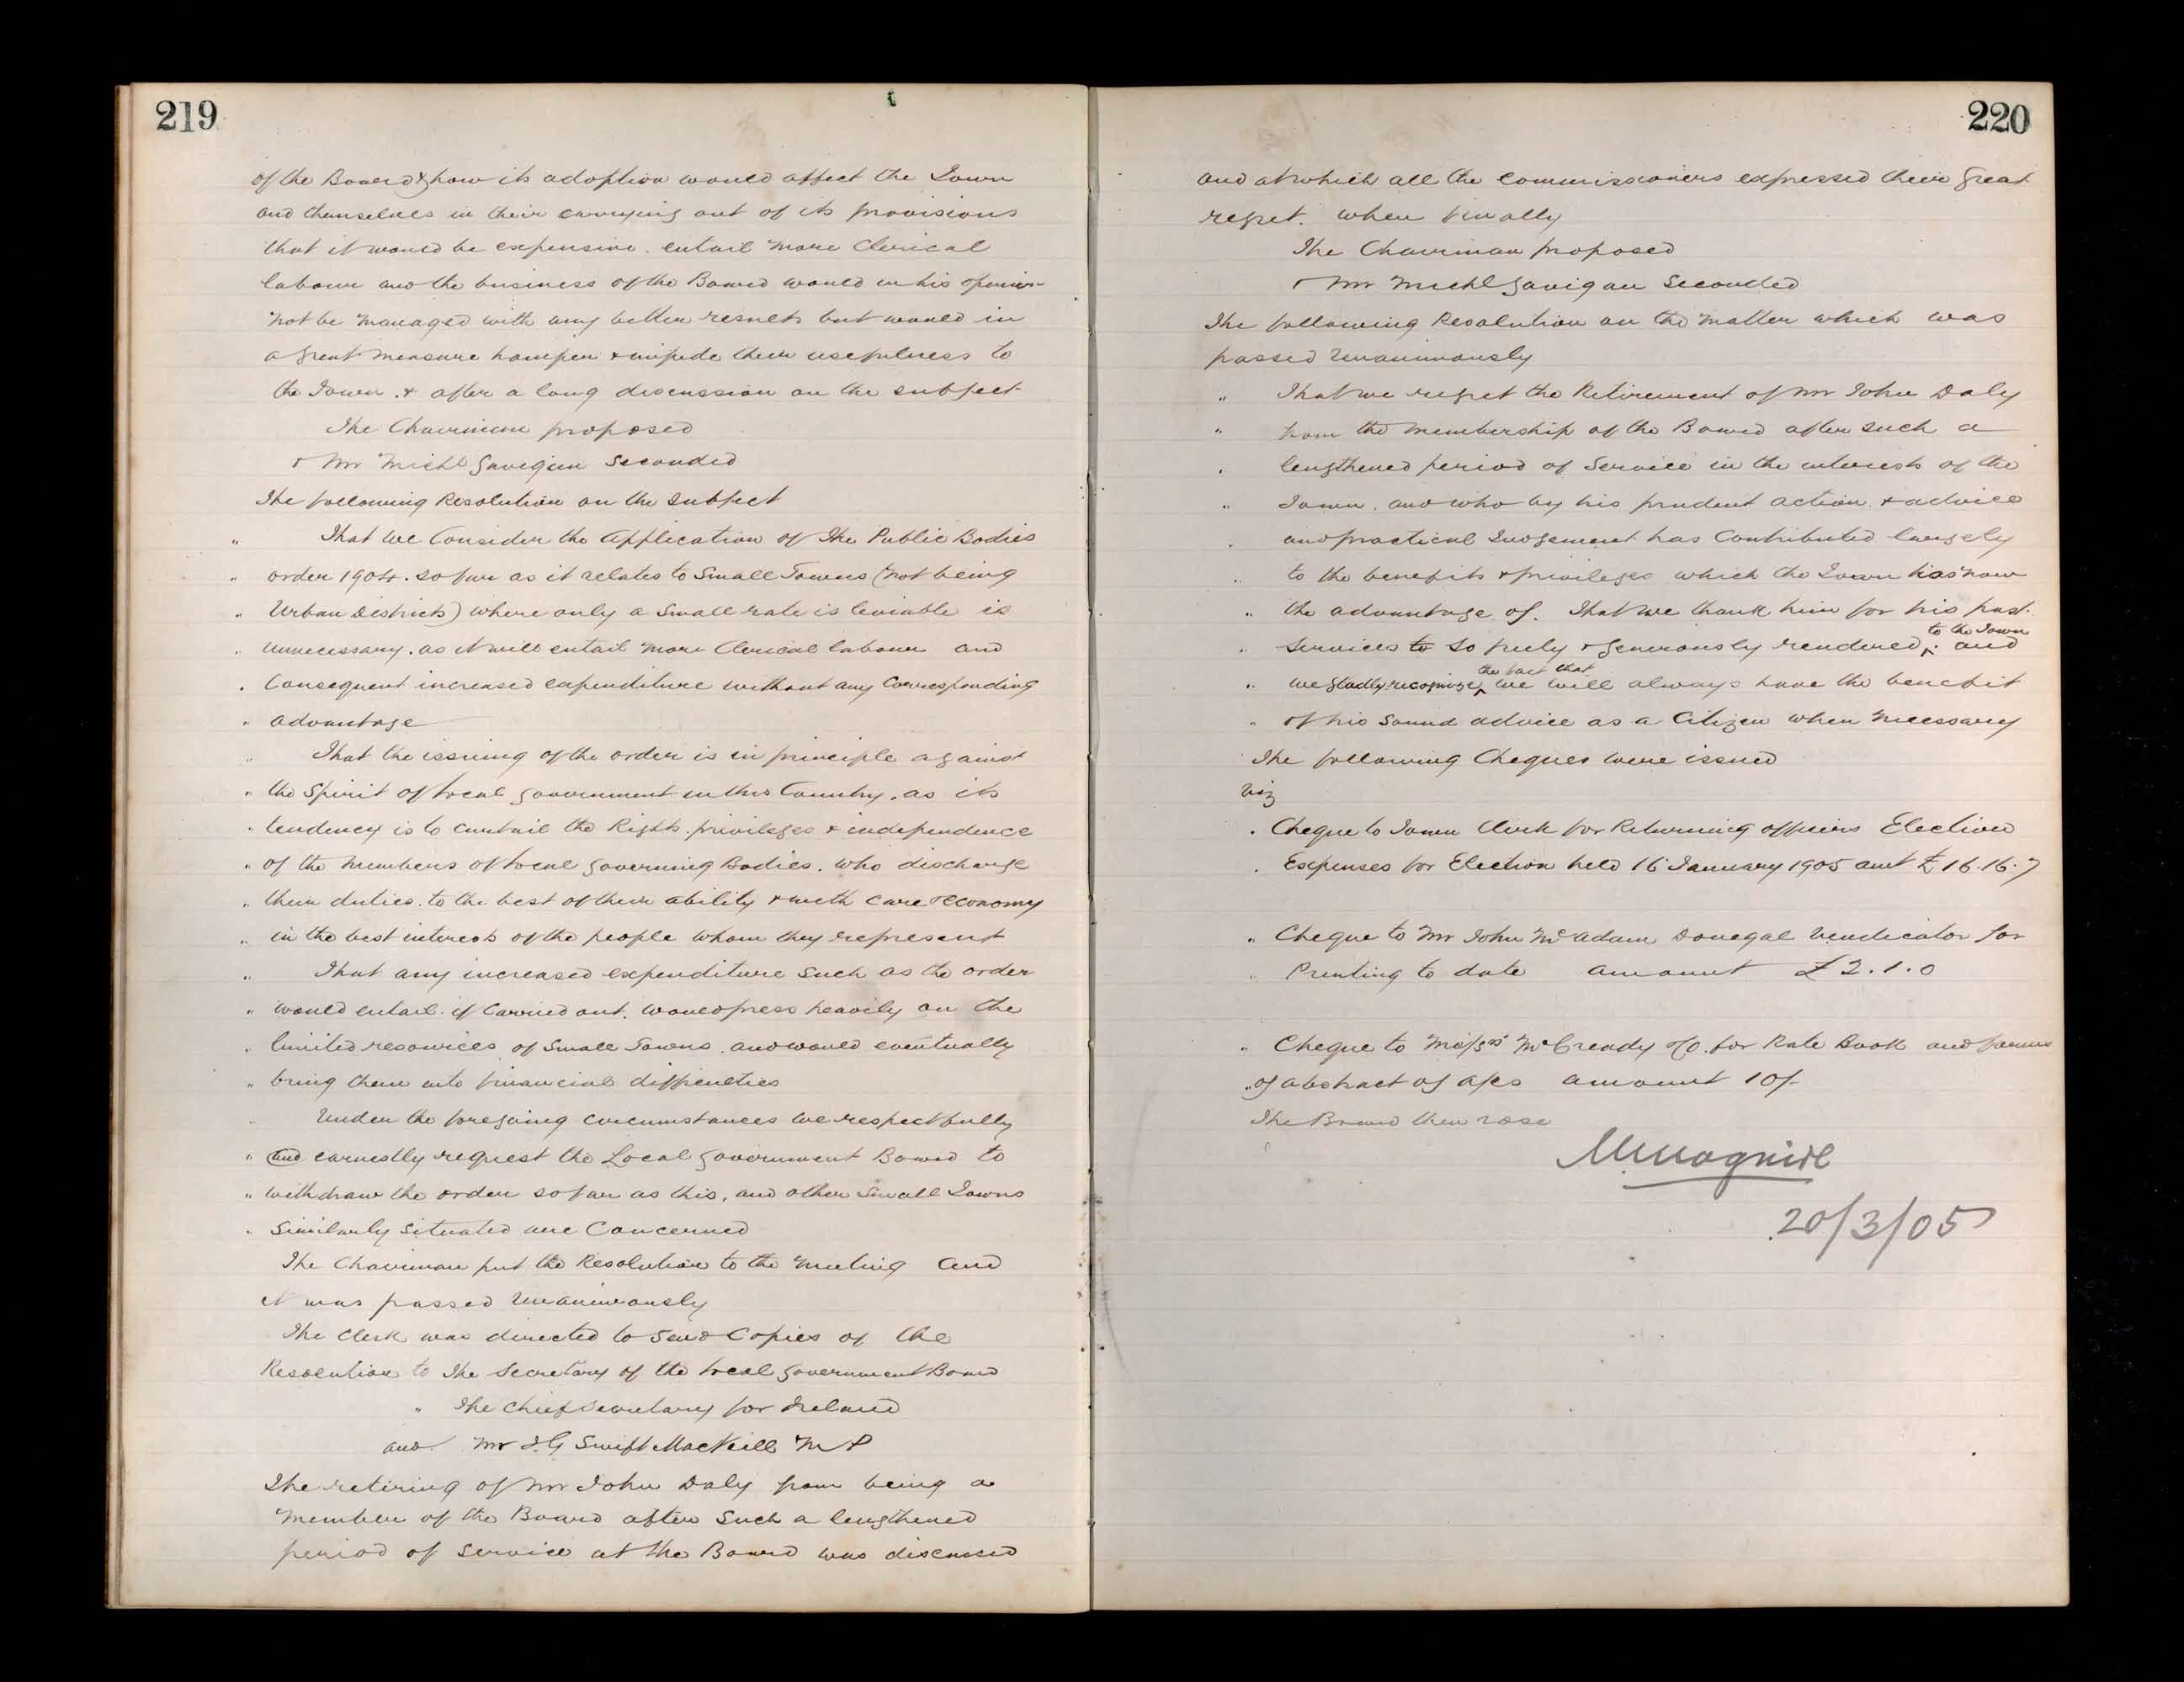 219
of the Board & how its adoption would affect the Town
and themselves in their carrying out of its provisions
that it would be expensive. entail more Clerical
labour and the business of the Board would in his opinion
not be managed with any better results but would in
a great measure hamper & impede their usefulness to
the Town. & after a long discussion on the subject
The Chairman proposed
& Mr Michl Gavigan Seconded
The following Resolution on the subject
" That we Consider the Application of The Public Bodies
" order 1904. so far as it relates to Small Towns (not being
" Urban Districts) where only a small rate is leviable is
" unnecessary. as it will entail more Clerical labour and
" Consequent increased expenditure without any Corresponding
" advantage
" That the issuing of the order is in principle against
" the Spirit of Local Government in this Country. as its
" tendency is to curtail the Rights. privileges & independence
" of the members of Local Governing Bodies. who discharge
" their duties. to the best of their ability & with care & economy
" in the best interests of the people whom they represent
" That any increased expenditure such as the order
" would entail. if Carried out. would press heavily on the
" limited resources of Small Towns. and would eventually
" bring them into financial difficulties
" Under the foregoing circumstances we respectfully
" and earnestly request the Local Government Board to
" withdraw the order so far as this, and other Small Towns
" Similarly situated are Concerned
The Chairman put the Resolution to the meeting and
it was passed Unanimously
The Clerk was directed to send Copies of the
Resolution to The Secretary of the Local Government Board
" The Chief Secretary for Ireland
and Mr J. G Swift MacNeill M P
The retiring of Mr John Daly from being a
member of the Board after such a lengthened
period of service at the Board was discussed
220
and at which all the Commissioners expressed their great
regret. when finally
The Chairman proposed
& Mr Michl Gavigan Seconded
The following Resolution on the matter which was
passed Unanimously
" That we regret the Retirement of Mr John Daly
" from the membership of the Board after such a
" lengthened period of Service in the interests of the
" Town. and who by his prudent action & advice
" and practical Judgement has Contributed largely
" to the benefits & privileges which the Town has now
" the advantage of. That we thank him for his past
" services to so freely & generously rendered to the Town. and
" we gladly recognize the fact that we will always have the benefit
" of his sound advice as a Citizen when necessary
The following Cheques were issued
viz
" Cheque to Town Clerk for Returning officers Election
" Expenses for Election held 16 January 1905 amt £16.16.7
" Cheque to Mr John McAdam Donegal Vindicator for
" Printing to date amount £2.1.0
" Cheque to Messrs McCready & Co. for Rate Book and forms
" of abstract of a/cs amount 10/-
The Board then rose
20/3/05